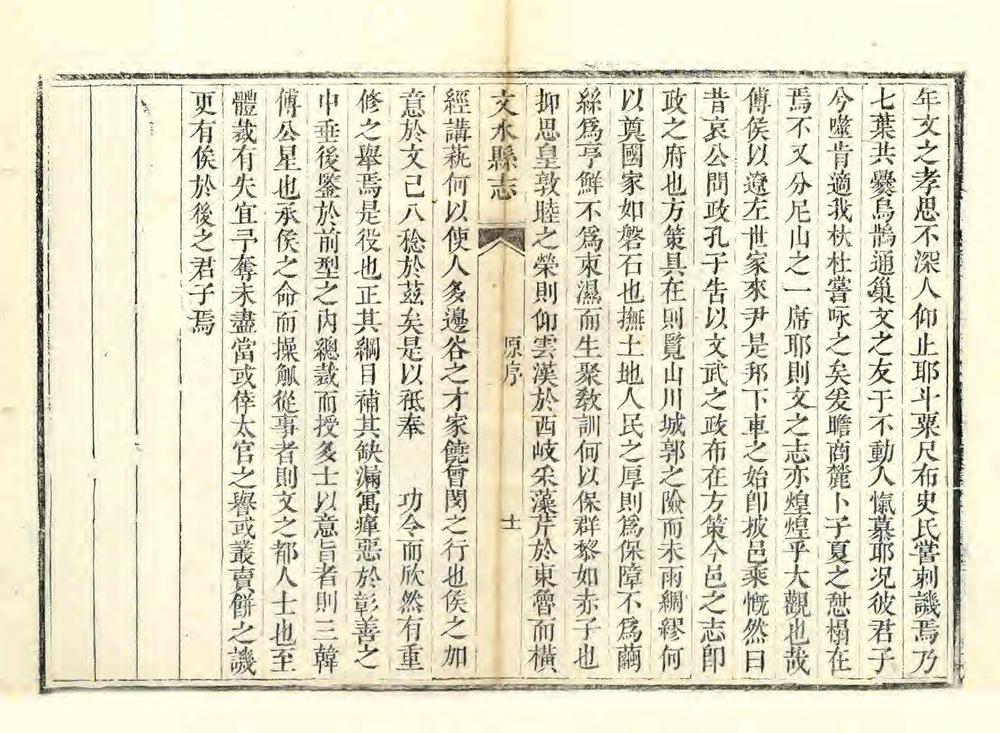 年文之孝思不深人仰止耶斗粟尺布史氏嘗刺譏焉乃
七葉共爨烏鵲通巢文之友于不動人愾慕耶况彼君子
兮噬肯適我杕杜嘗咏之矣爰瞻商麓卜子夏之憇榻在
焉不又分尼山之一席耶則文之志亦煌煌乎大觀也哉
傅侯以遼左世家來尹是邦下車之始卽披邑乘慨然曰
昔哀公問政孔子告以文武之政布在方策今邑之志卽
政之府也方策具在則覽山川城郭之險而未雨綢繆何
以奠國家如磐石也撫土地人民之厚則爲保障不爲繭
絲爲亨鮮不爲束濕而生聚敎訓何以保群黎如赤子也
抑思皇敦睦之榮則仰雲漢於西岐采藻芹於東魯而橫
文水縣志
原序
十
經講蓺何以使人多邊谷之才家饒曾閔之行也侯之加
意於文已八稔於茲矣是以祗奉　功令而欣然有重
修之舉焉是役也正其綱目補其缺漏寓癉惡於彰善之
中垂後鑒於前型之內總裁而授多士以意旨者則三韓
傅公星也承侯之命而操觚從事者則文之都人士也至
體裁有失宜予奪未盡當或倖太官之譽或叢賣餅之譏
更有俟於後之君子焉